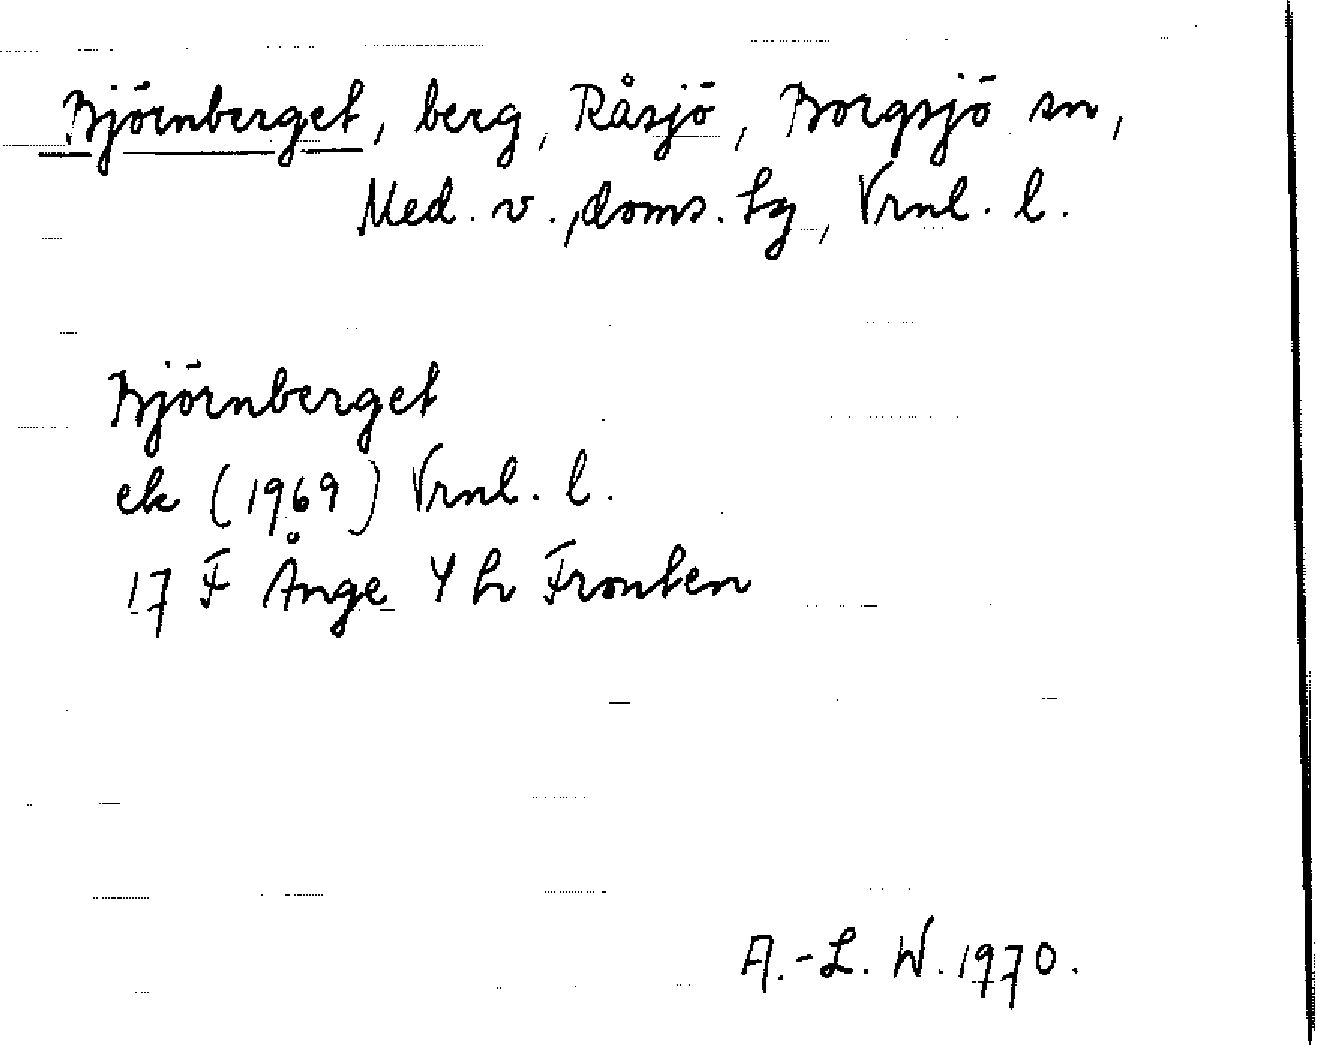 Björnberget, berg, Råsjö, Borgsjö sn,
Med. v., doms. hg, Vrnl. l.
Björnberget
ek (1969) Vrnl. l.
17 F Ånge Y h Fronten
A.-L. W. 1970.